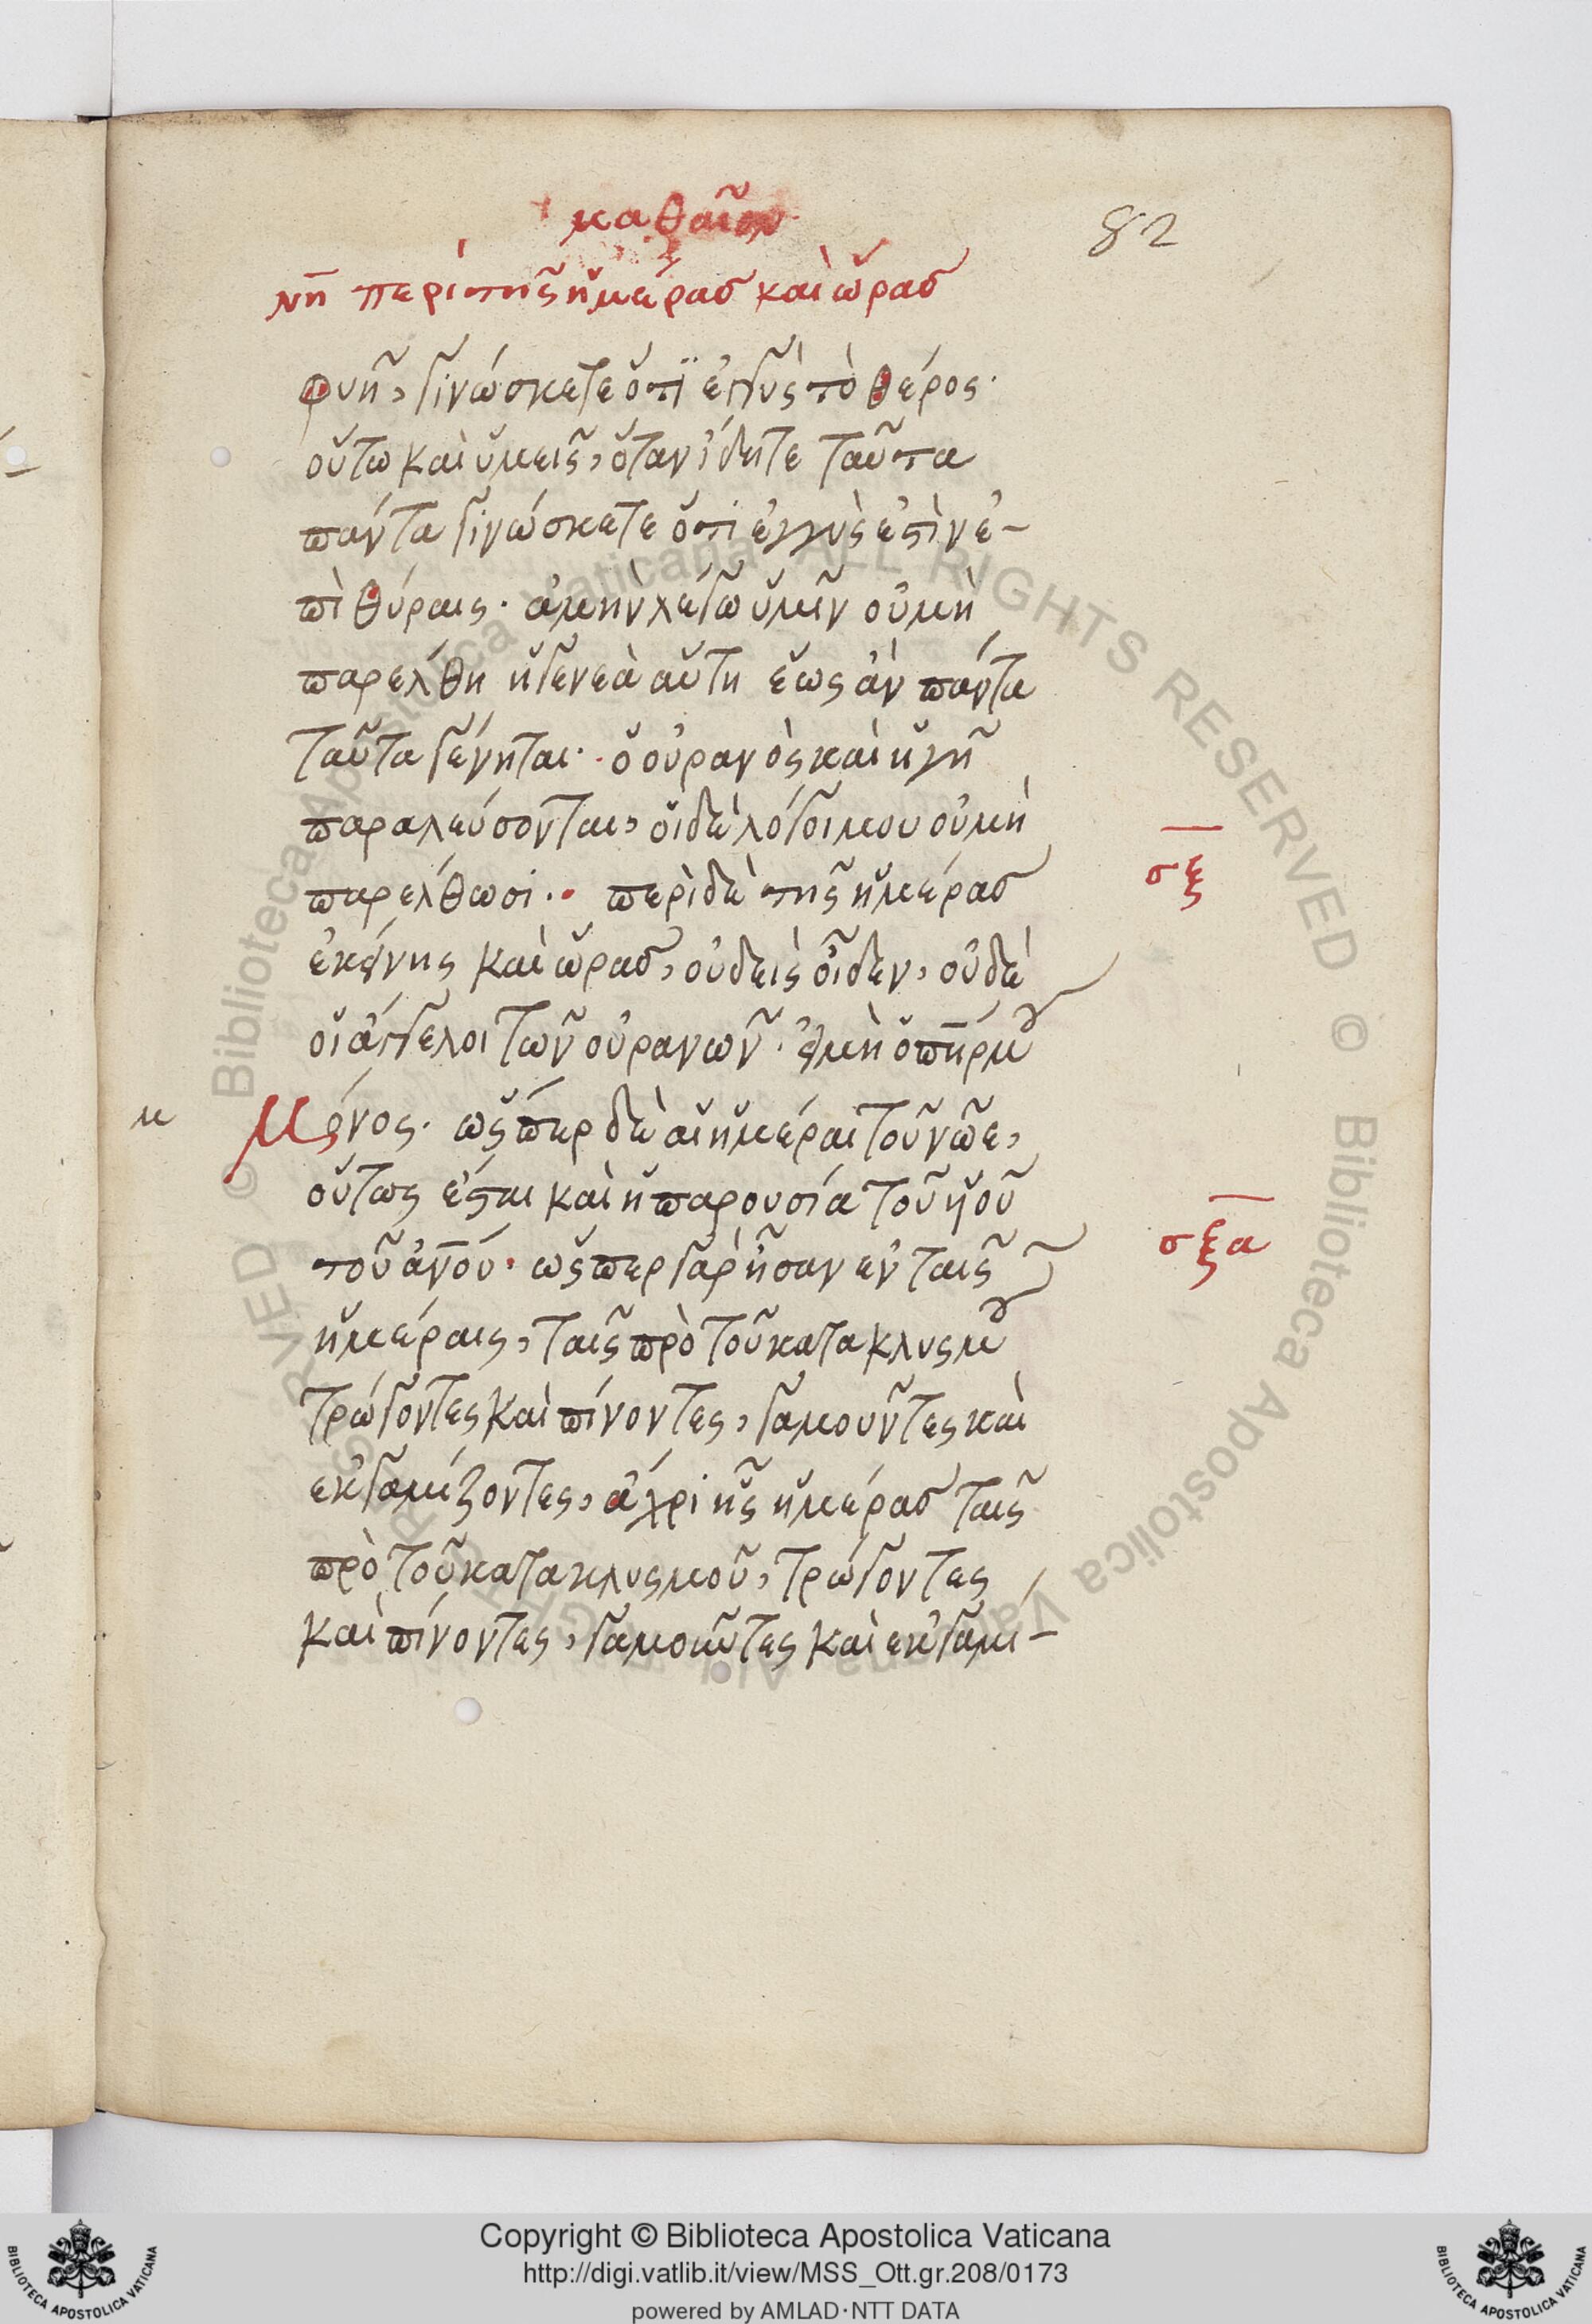 καθαῖον
82
νη περὶ τῆς ἡμέρας καὶ ὥρας
φυῆ, γινώσκετε ὅτι ἐγγὺς τὸ θέρος·
οὕτω καὶ ὑμεῖς, ὅταν ἴδητε ταῦτα
πάντα γινώσκετε ὅτι ἐγγὺς ἐστὶν ἐ-
πὶ θύραις· ἀμὴν λέγω ὑμῖν οὐ μὴ
παρέλθη ἡ γενεὰ αὕτη ἕως ἂν πάντα
ταῦτα γένηται· ὁ οὐρανὸς καὶ ἡ γῆ
παραλεύσονται, οἱ δὲ λόγοι μου οὐ μὴ
σξ
παρέλθωσι· περὶ δὲ τῆς ἡμέρας
ἐκείνης καὶ ὥρας, οὐδεὶς οἶδεν, οὐδὲ
οἱ ἄγγελοι τῶν οὐρανῶν· εἰ μὴ ὁ πηρ μου
μόνος· ὥσπερ δὲ αἱ ἡμέραι τοῦ νῶε,
οὕτως ἔσται καὶ ἡ παρουσία τοῦ ὑοῦ
σξα
τοῦ ἀνου· ὥσπερ γὰρ ἦσαν ἐν ταῖς
ἡμέραις, ταῖς πρὸ τοῦ κατακλυσμοῦ
τρώγοντες καὶ πίνοντες, γαμοῦντες καὶ
ἐκγαμίζοντες, ἄχρι ἧς ἡμέρας ταῖς
πρὸ τοῦ κατακλυσμοῦ, τρώγοντες
καὶ πίνοντες, γαμοῦντες καὶ ἐκγαμί-
Copyright © Biblioteca Apostolica Vaticana
http://digi.vatlib.it/view/MSS_Ott.gr.208/0173
powered by AMLAD·NTT DATA